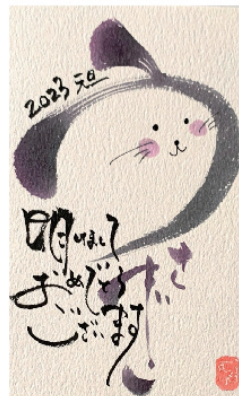 2023 元旦
明けまして
おめでとう
ございます